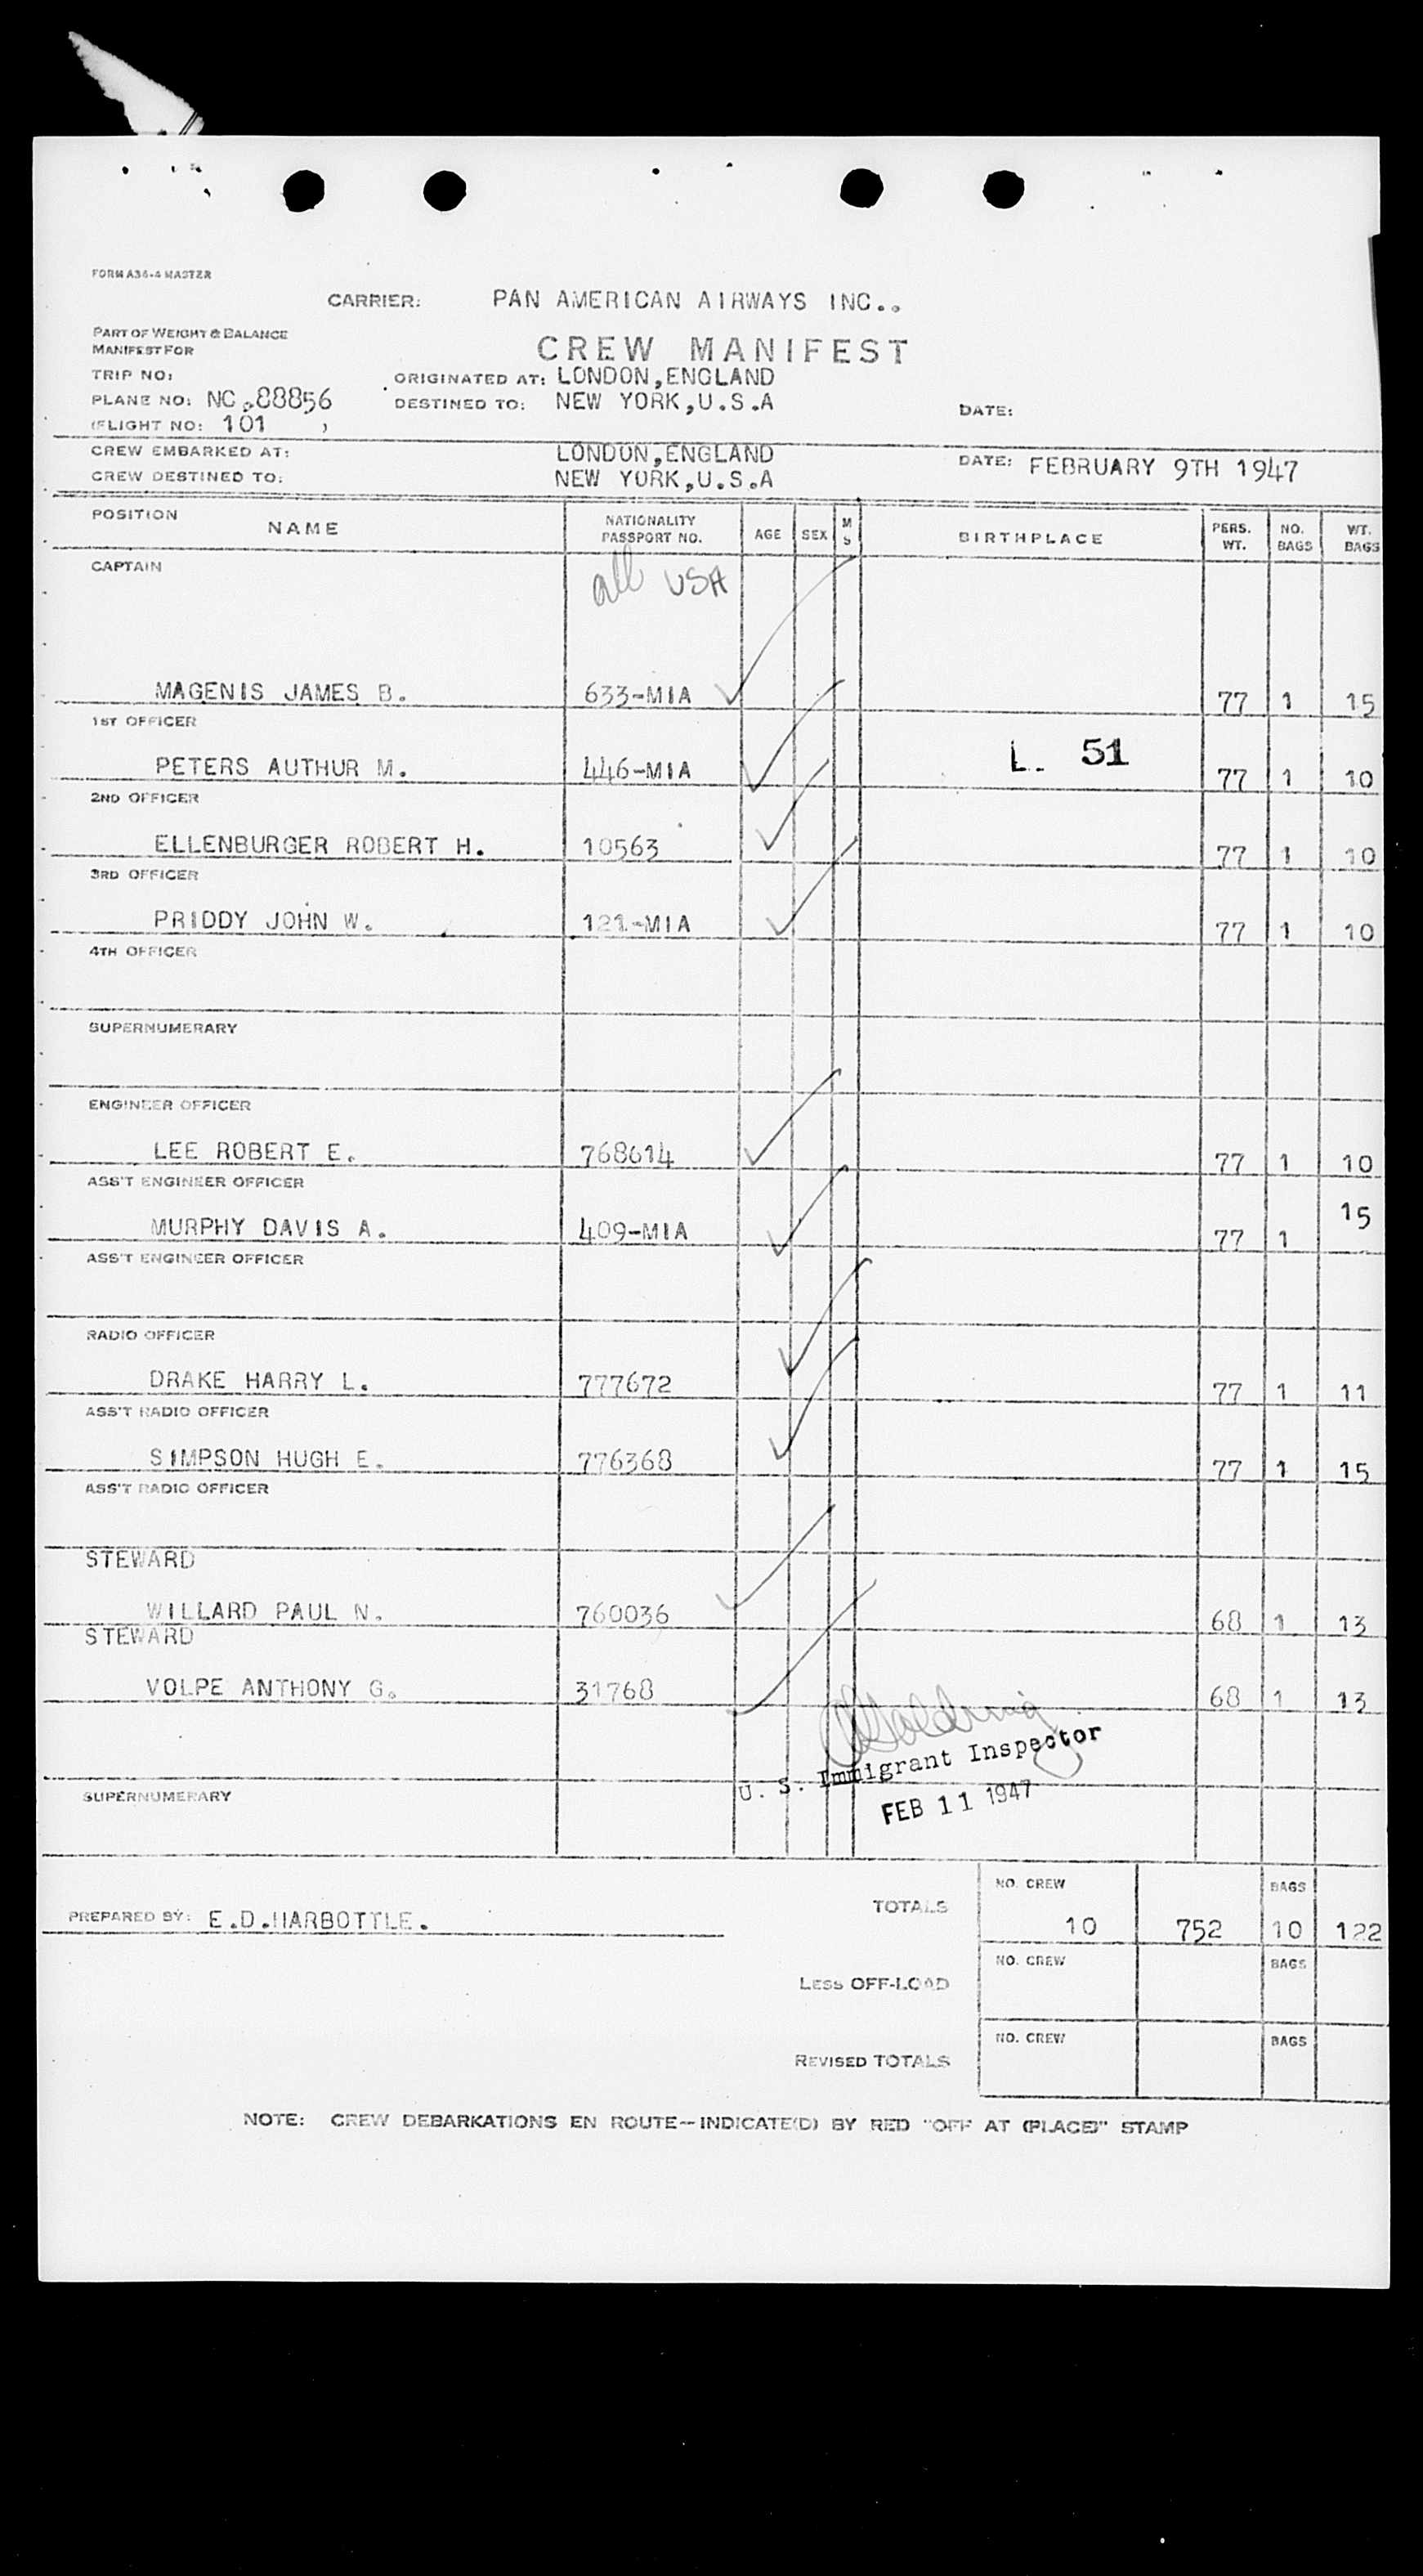 FORM A36-4 MASTER
CARRIER: PAN AMERICAN AIRWAYS INC..
PART OF WEIGHT & BALANCE
MANIFEST FOR
CREW MANIFEST
TRIP NO: ORIGINATED AT: LONDON,ENGLAND
PLANE NO: NC.88856 DESTINED TO: NEW YORK,U.S.A DATE:
(FLIGHT NO: 101 )
CREW EMBARKED AT: LONDON,ENGLAND DATE: FEBRUARY 9TH 1947
CREW DESTINED TO: NEW YORK,U.S.A
POSITION NAME NATIONALITY PASSPORT NO. AGE SEX M S BIRTHPLACE PERS. WT. NO. BAGS WT. BAGS
CAPTAIN all USA
MAGENIS JAMES B. 633-MIA 77 1 15
1ST OFFICER
L. 51
PETERS AUTHUR M. 446-MIA 77 1 10
2ND OFFICER
ELLENBURGER ROBERT H. 10563 77 1 10
3RD OFFICER
PRIDDY JOHN W. 121-MIA 77 1 10
4TH OFFICER
SUPERNUMERARY
ENGINEER OFFICER
LEE ROBERT E. 768614 77 1 10
ASS'T ENGINEER OFFICER
MURPHY DAVIS A. 409-MIA 77 1 15
ASS'T ENGINEER OFFICER
RADIO OFFICER
DRAKE HARRY L. 777672 77 1 11
ASS'T RADIO OFFICER
SIMPSON HUGH E. 776368 77 1 15
ASS'T RADIO OFFICER
STEWARD
WILLARD PAUL N. 760036 68 1 13
STEWARD
VOLPE ANTHONY G. 31768 68 1 13
U. S. Immigrant Inspector
FEB 11 1947
SUPERNUMERARY
NO. CREW BAGS
PREPARED BY: E.D.HARBOTTLE. TOTALS 10 752 10 122
NO. CREW BAGS
LESS OFF-LOAD
NO. CREW BAGS
REVISED TOTALS
NOTE: CREW DEBARKATIONS EN ROUTE--INDICATE(D) BY RED "OFF AT (PLACE)" STAMP